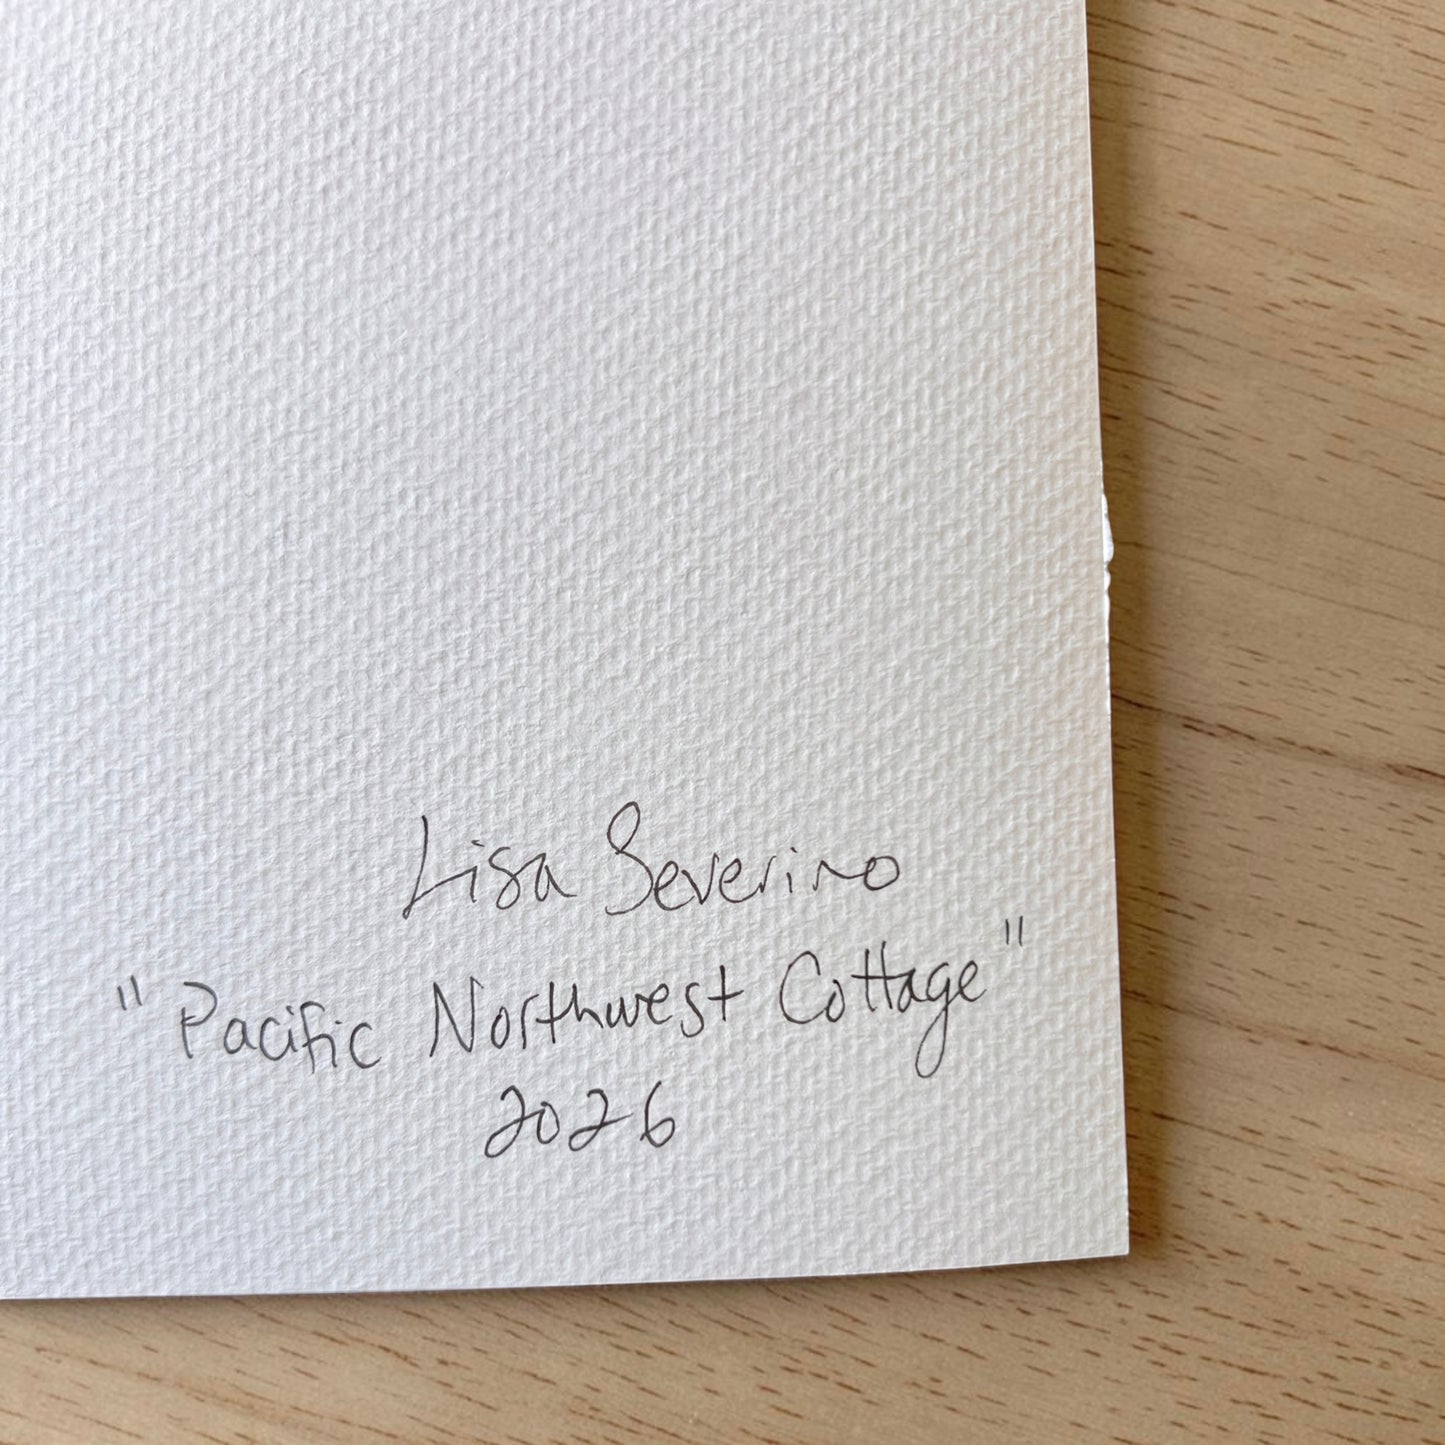 Lisa Severino
"Pacific Northwest Cottage"
2026